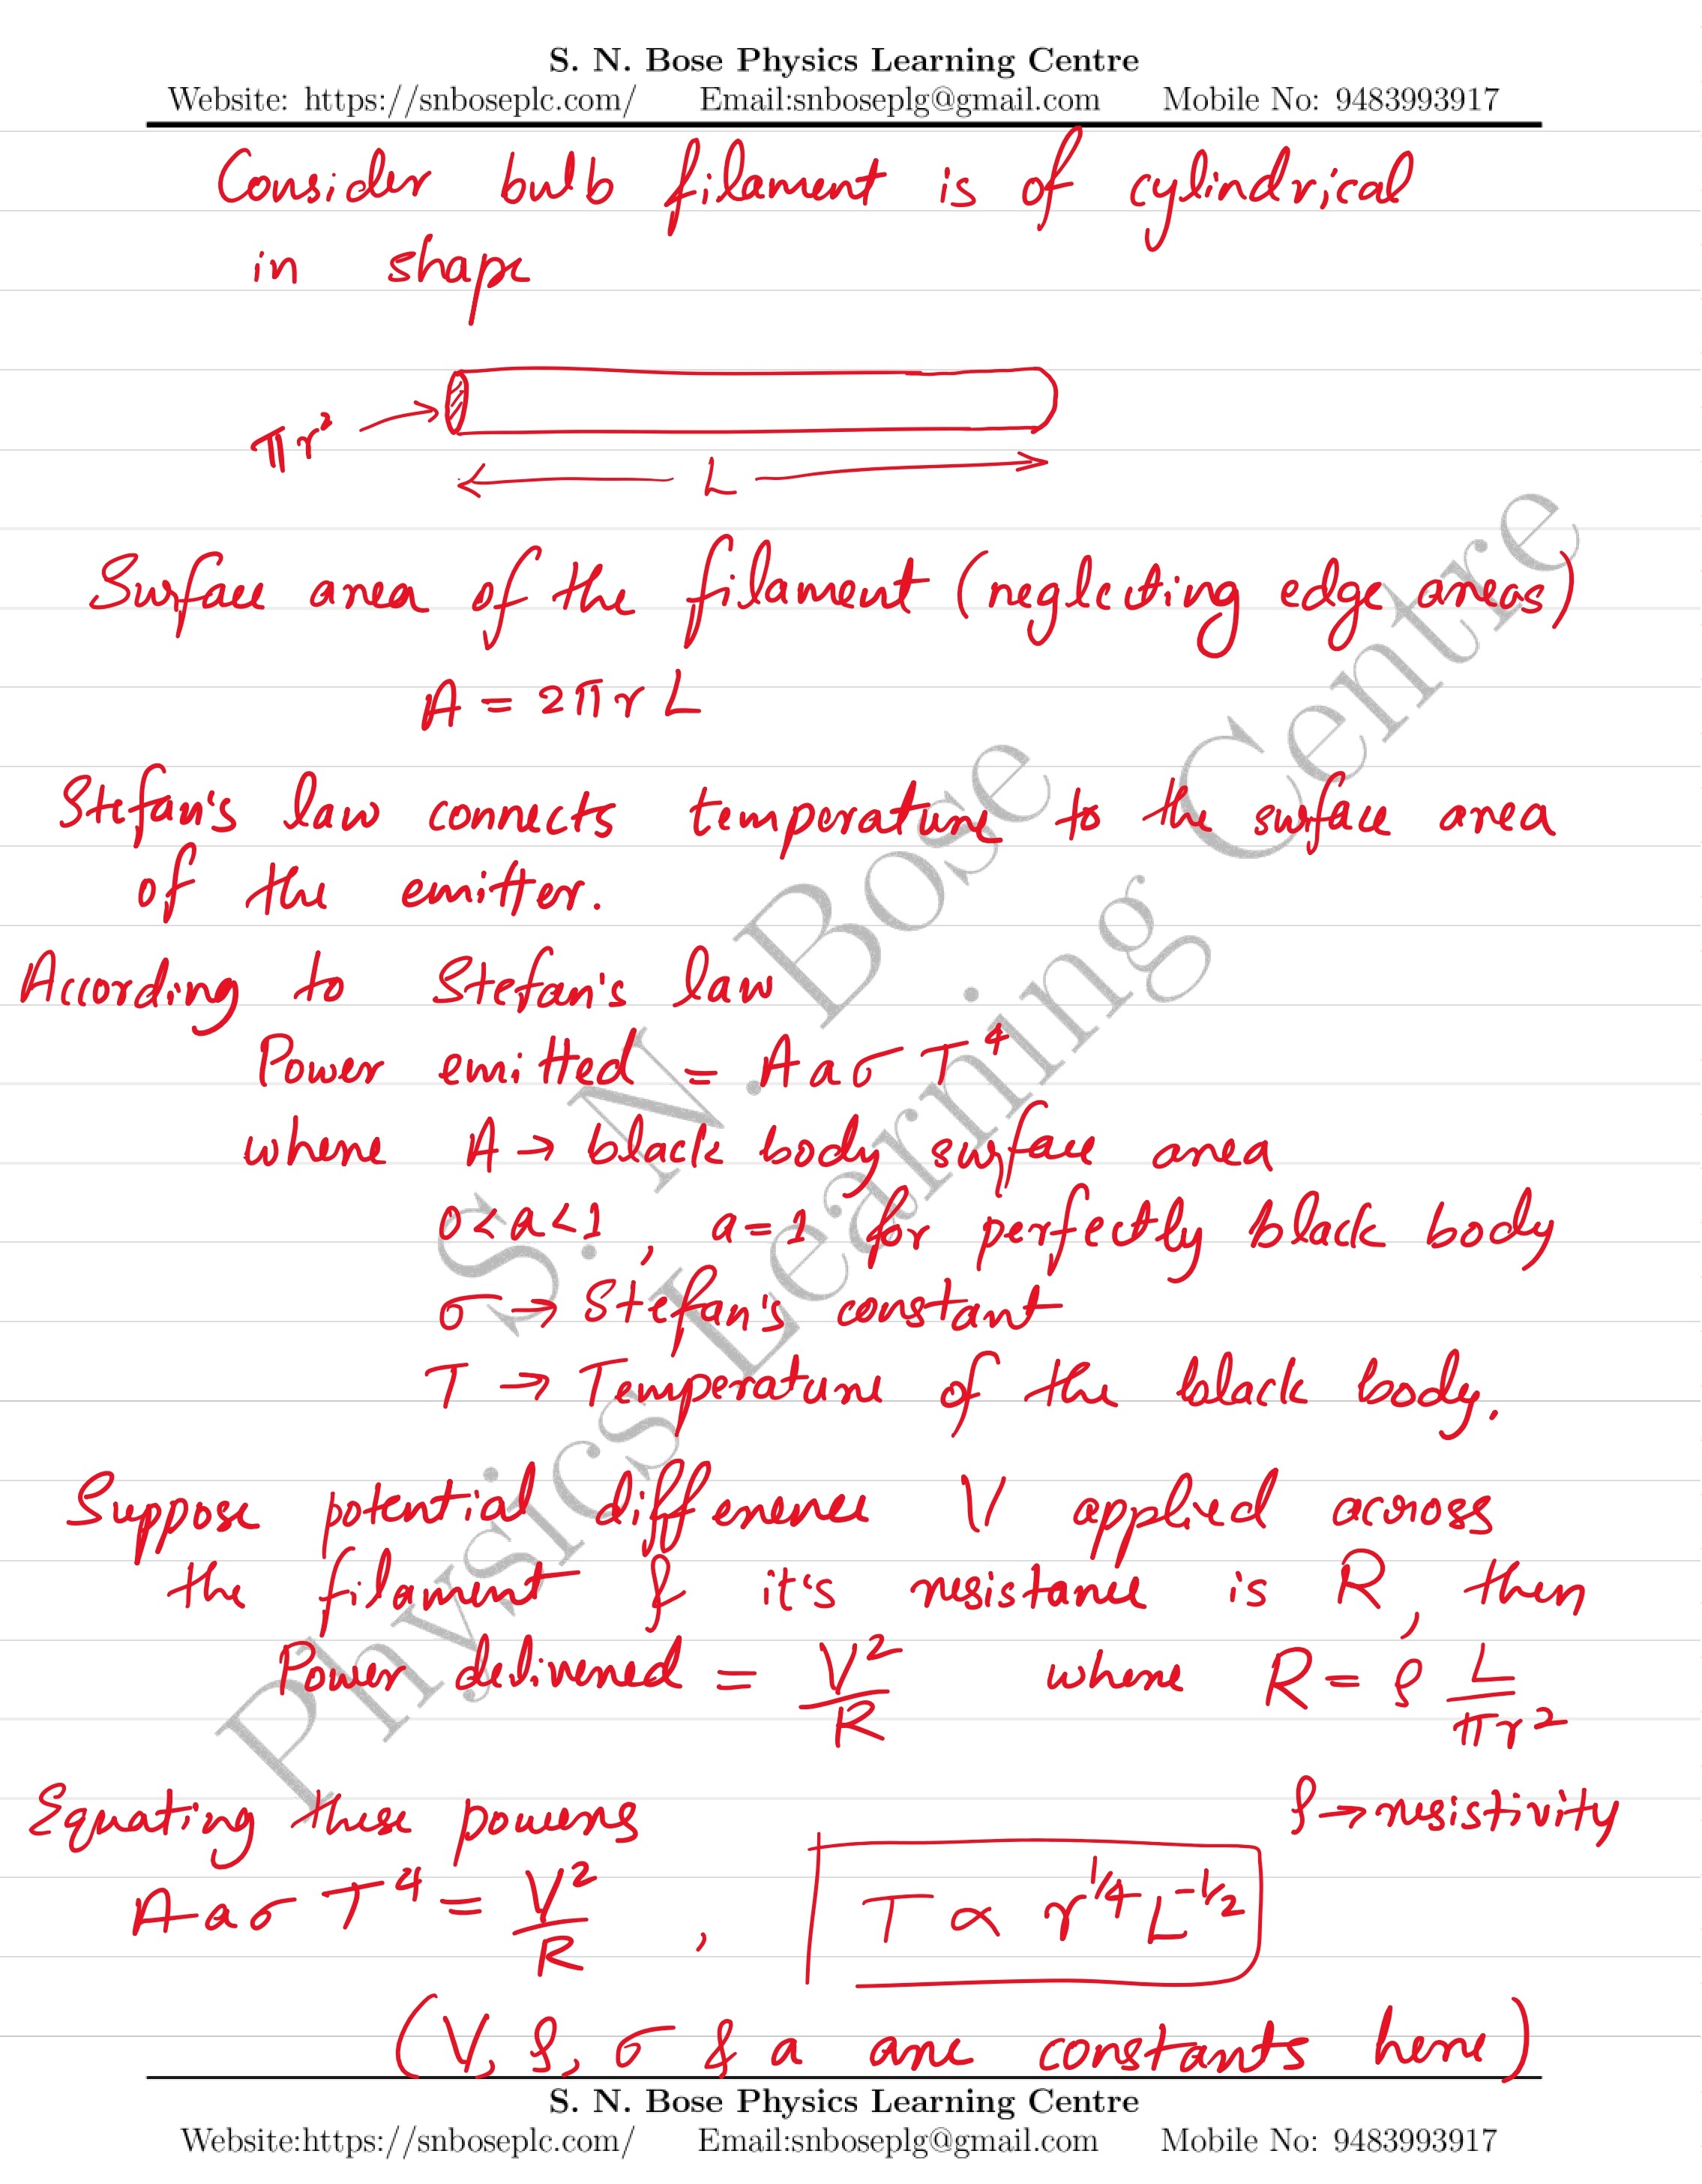 S. N. Bose Physics Learning Centre
Website: https://snboseplc.com/ Email:snboseplg@gmail.com Mobile No: 9483993917
Consider bulb filament is of cylindrical
in shape
πr²
L
Surface area of the filament (neglecting edge areas)
A = 2πrL
Stefan's law connects temperature to the surface area
of the emitter.
According to Stefan's law
Power emitted = A a σ T⁴
where A → black body surface area
0<a<1, a=1 for perfectly black body
σ → Stefan's constant
T → Temperature of the black body.
Suppose potential difference V applied across
the filament & it's resistance is R, then
Power delivered = V²/R where R = ρ L/πr²
ρ → resistivity
Equating these powers
A a σ T⁴ = V²/R , T ∝ r^1/4 L^-1/2
(V, ρ, σ & a are constants here)
S. N. Bose
Physics Learning Centre
S. N. Bose Physics Learning Centre
Website:https://snboseplc.com/ Email:snboseplg@gmail.com Mobile No: 9483993917